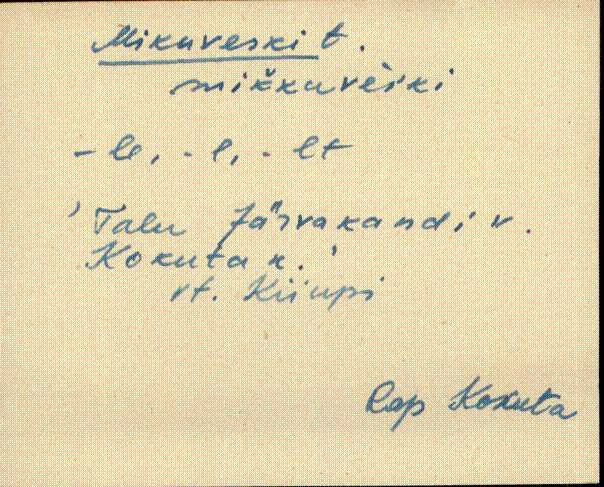 Mikuveski t.
mikkuvèski
- le, - l, - lt
' Talu Järvakandi v.
Kokuta k. '
vt. Kiiupi
Rap Kokuta